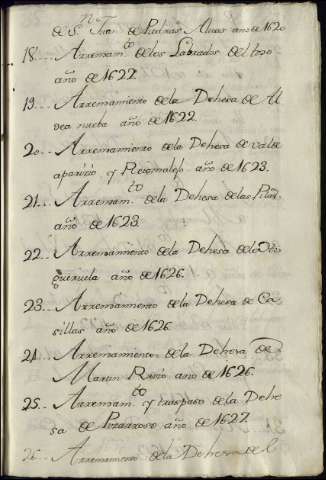 de Sn. Juan de Piedras Alvas año de 1620
18... Arrendamto. de los Labrados del trozo
año de 1622.
19... Arrendamiento de la Dehesa de Al
dea nueba año de 1622
20... Arrendamiento de la Dehesa de valde
aparizio y Rexomalejo año de 1623.
21... Arrendamto. de la Dehesa de las Pilas
año de 1623.
22... Arrendamiento de la Dehesa de la
año de 1626.
23... Arrendamiento de la Dehesa de Ca-
sillas año de 1626
24... Arrendamiento de la Dehesa de
Martin año de 1626.
25... Arrendamto. y traspaso de la Dehe
sa de año de 1627
26... Arrendamiento de la Dehesa del